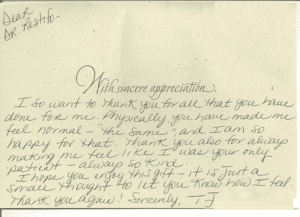 Dear
Dr Restifo-
With sincere appreciation.
I so want to thank you for all that you have
done for me. Physically, you have made me
feel normal - "the same", and I am so
happy for that. Thank you also for always
making me feel like I was your only
patient - always so kind.
I hope you enjoy this gift - it is just a
small thought to let you know how I feel.
Thank you again! Sincerely, T J